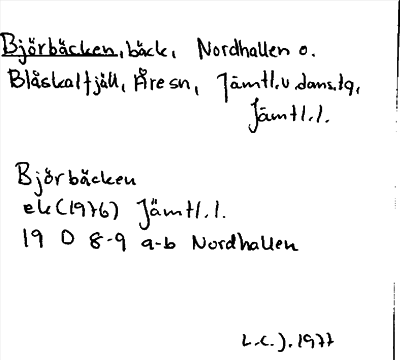 Björbäcken, bäck, Nordhallen o.
Blåskalfjäll, Åre sn, Jämtl. v. doms. tg,
Jämtl. l.
Björbäcken
ek (1976) Jämtl. l.
19 D 8-9 a-b Nordhallen
L.C.J. 1977